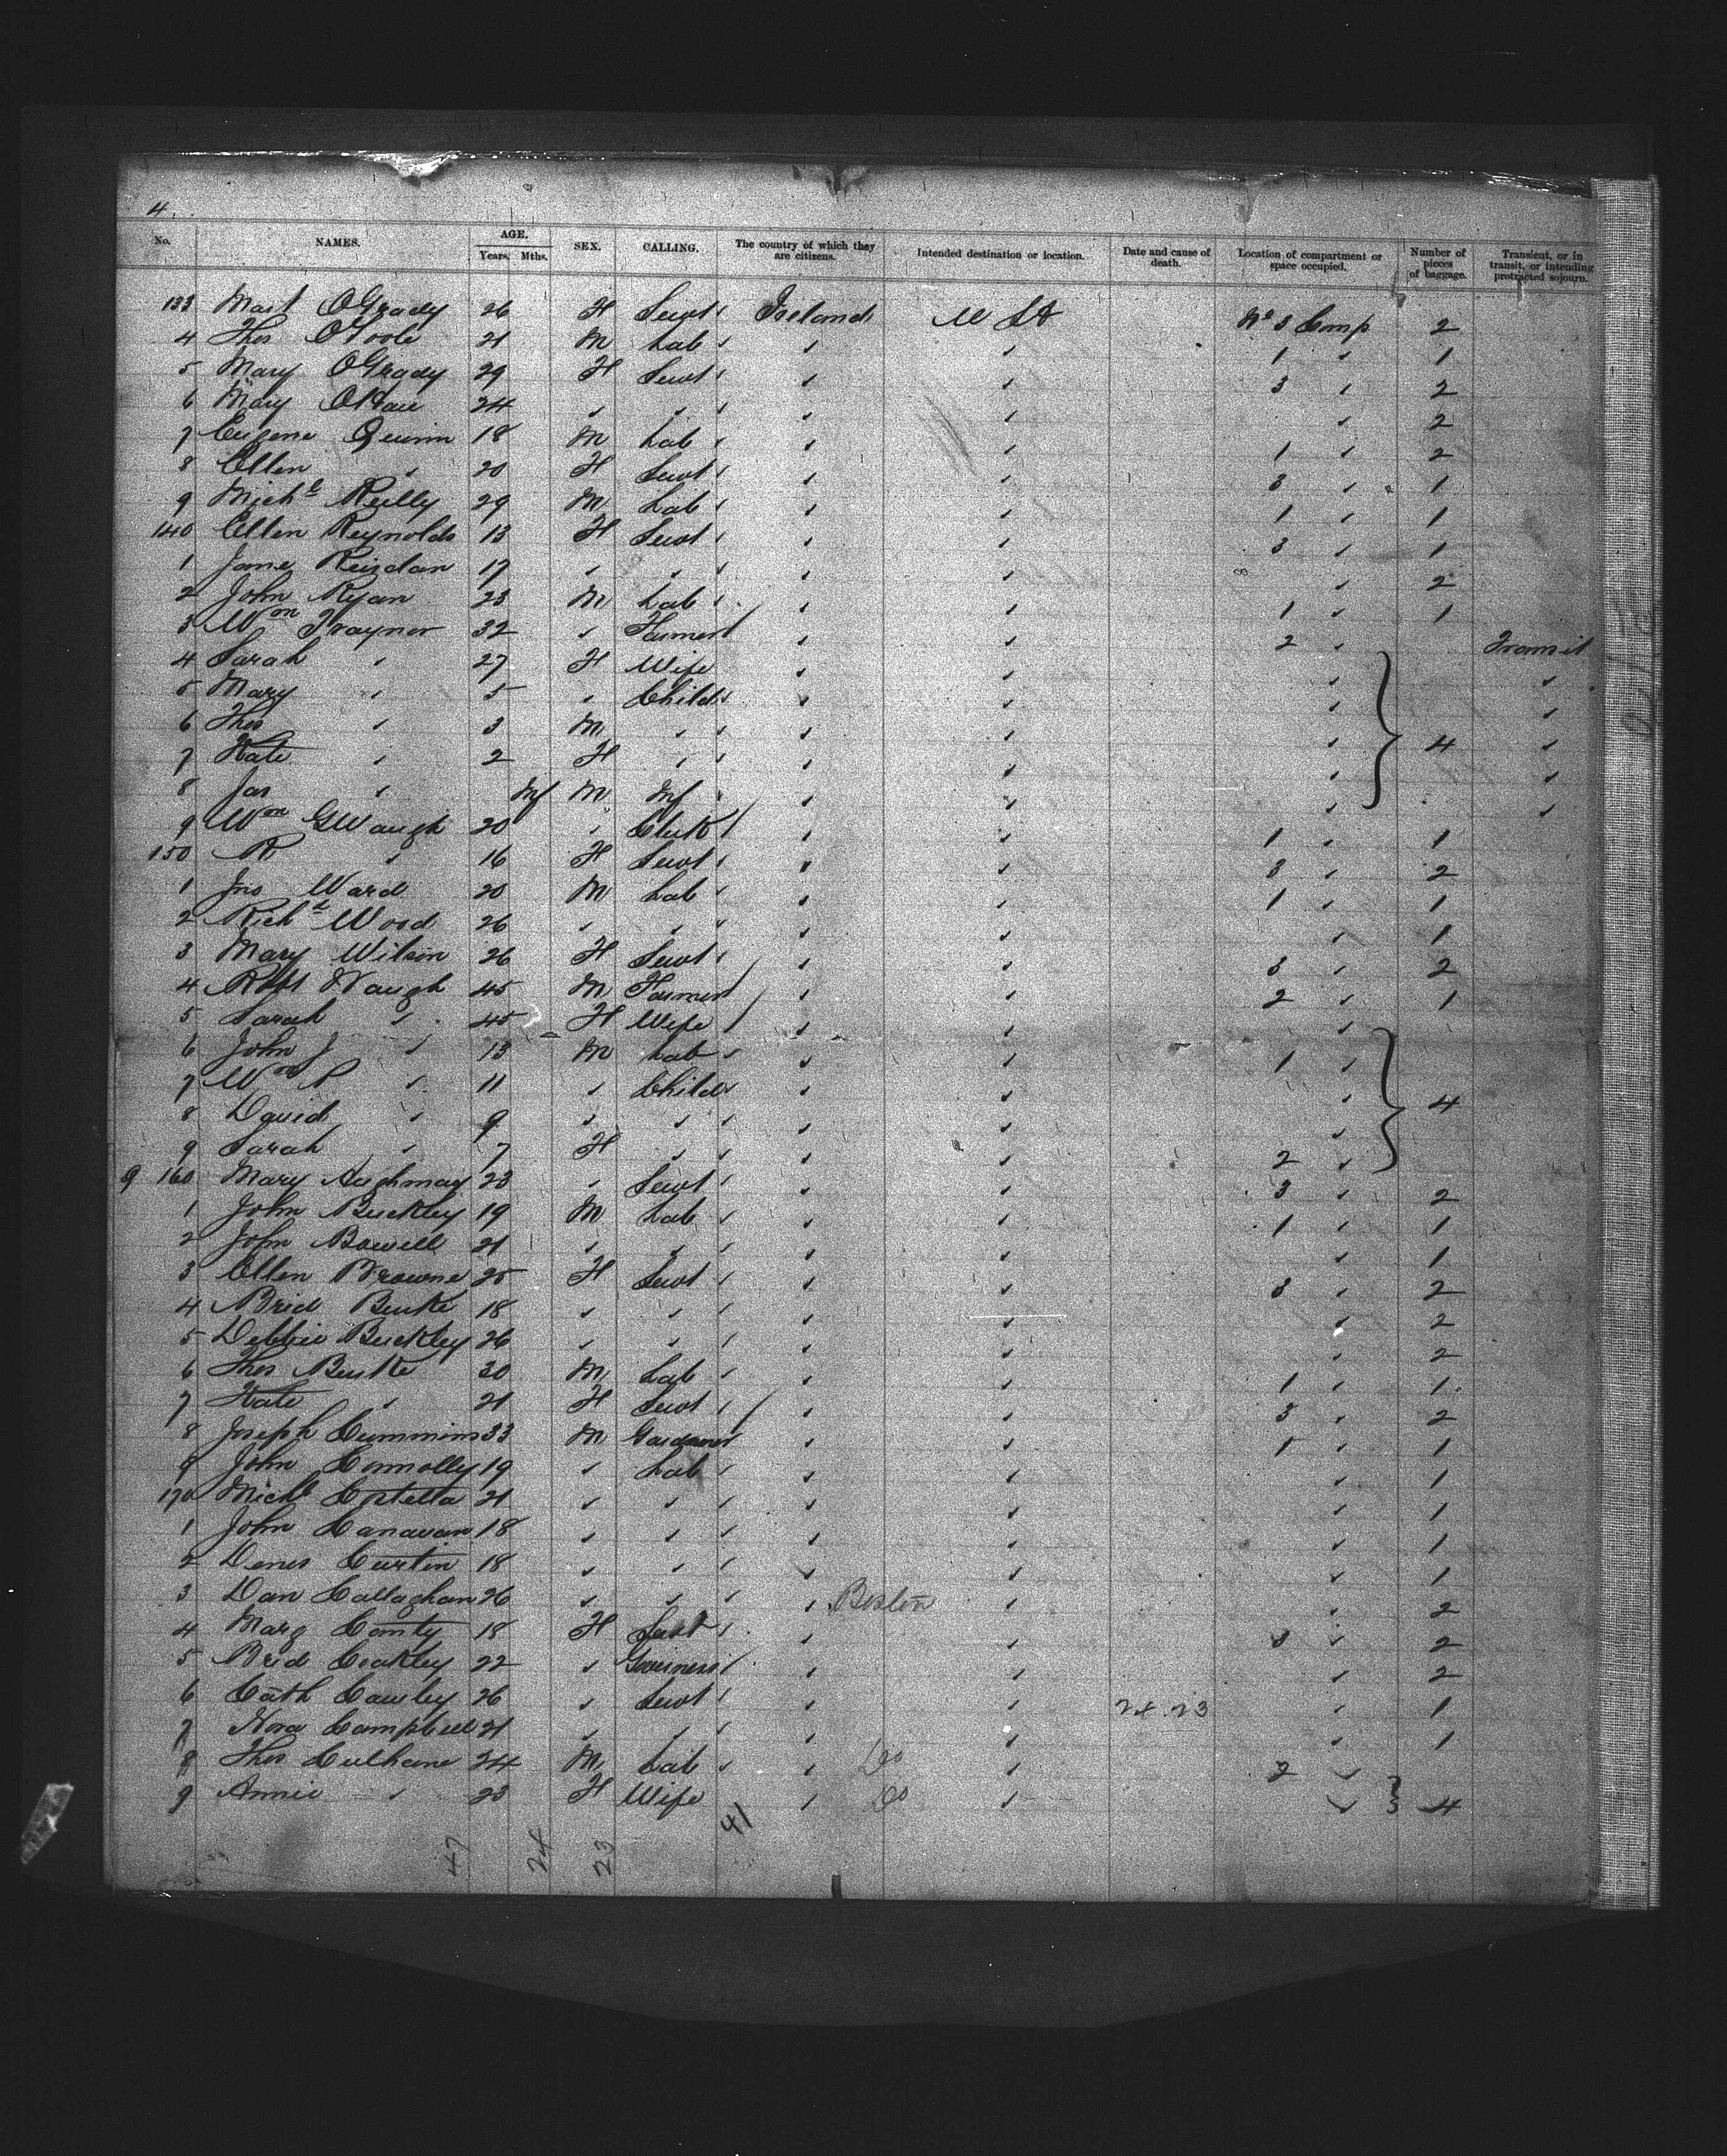 4.
No. NAMES. AGE. Years. Mths. SEX. CALLING. The country of which they are citizens. Intended destination or location. Date and cause of death. Location of compartment or space occupied. Number of pieces of baggage. Transient, or in transit, or intending protracted sojourn.
133 Mart O'Grady 26 F Servt Ireland U St No 3 Comp 2
4 Thos O'Toole 21 M Lab " " 1 " 1
5 Mary O'Grady 29 F Servt " " 3 " 2
6 Mary 24 " " " " " 2
7 Eugene Quinn 18 M Lab " " 1 " 2
8 Ellen " 20 F Servt " " 3 " 1
9 Michl Reilly 29 M Lab " " 1 " 1
140 Ellen Reynolds 13 F Servt " " 3 " 1
1 Jane Reirdan 17 " " " " " 2
2 John Ryan 23 M Lab " " 1 " 1
3 Wm Traynor 32 " Farmer " " 2 " Transit
4 Sarah " 27 F Wife " " " "
5 Mary " 5 " Child " " " "
6 Thos " 3 M " " " " 4 "
7 Kate " 2 F " " " " "
8 Jas " Inf M Inf " " " "
9 Wm G Waugh 20 " Clerk " " 1 " 1
150 R " 16 F Servt " " 3 " 2
1 Jno Ward 20 M Lab " " 1 " 1
2 Richd Wood 26 " " " " " 1
3 Mary Wilson 26 F Servt " " 3 " 2
4 Robt Waugh 45 M Farmer " " 2 " 1
5 Sarah " 45 F Wife " " "
6 John J " 13 M Lab " " 1 "
7 Wm R " 11 " Child " " " 4
8 David " 9 " " " " "
9 Sarah " 7 F " " " 2 "
9 160 Mary Aughmay 23 " Servt " " 3 " 2
1 John Buckley 19 M Lab " " 1 " 1
2 John Bowell 21 " " " " " 1
3 Ellen Browne 25 F Servt " " 3 " 2
4 Brid Burke 18 " " " " " 2
5 Debbie Buckley 26 " " " " " 2
6 Thos Burke 30 M Lab " " 1 " 1
7 Kate " 21 F Servt " " 3 " 2
8 Joseph Cummins 33 M Gardener " " 1 " 1
9 John Connolly 19 " Lab " " " 1
170 Michl Costella 21 " " " " " 1
1 John Canavan 18 " " " " " 1
2 Denis Curtin 18 " " " " " 1
3 Dan Callaghan 26 " " " Boston " " 2
4 Marg Comty 18 F Servt " " 3 " 2
5 Brid Coakley 22 " Governess " " " 2
6 Cath Cawley 26 " Servt " " 24.23 " 1
7 Nora Campbell 21 " " " " " 1
8 Thos Culhane 24 M Lab " Do " 2 "
9 Annie " 23 F Wife " Do " " 3 4
47 24 23 41